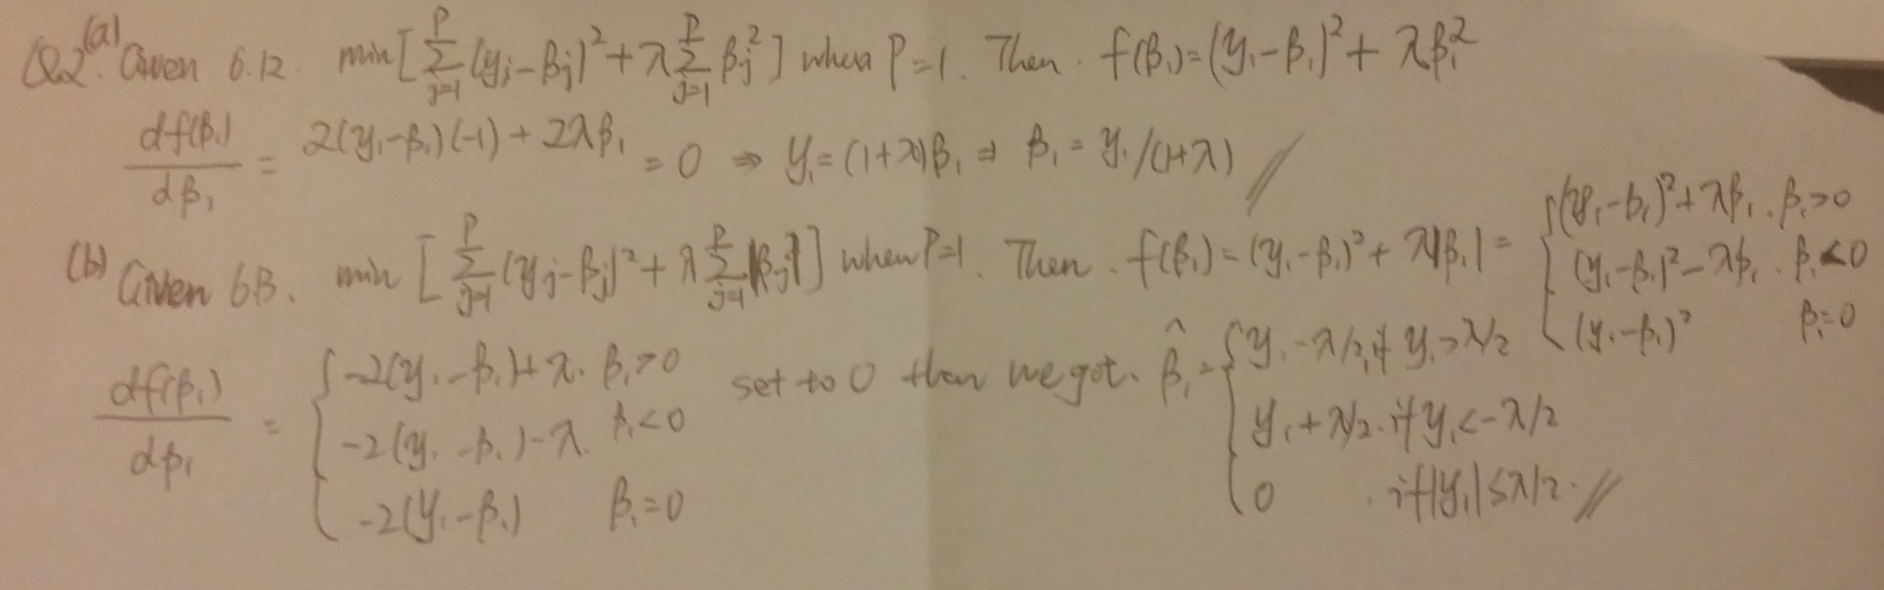 Q2.(a) Given 6.12. min[∑_{j=1}^{P}(y_j-β_j)²+λ∑_{j=1}^{P}β_j²] when P=1. Then. f(β₁)=(y₁-β₁)²+λβ₁²
df(β₁)/dβ₁ = 2(y₁-β₁)(-1)+2λβ₁ = 0 ⇒ y₁=(1+λ)β₁ ⇒ β₁=y₁/(1+λ) //
(b) Given 6.13. min [∑_{j=1}^{P}(y_j-β_j)²+λ∑_{j=1}^{P}|β_j|] when P=1. Then. f(β₁)=(y₁-β₁)²+λ|β₁| = { (y₁-b₁)²+λβ₁. β₁>0
(y₁-β₁)²-λβ₁. β₁<0
(y₁-β₁)² β₁=0
df(β₁)/dβ₁ = { -2(y₁-β₁)+λ. β₁>0
-2(y₁-β₁)-λ. β₁<0
-2(y₁-β₁) β₁=0
set to 0 then we got. β̂₁= { y₁-λ/2, if y₁>λ/2
y₁+λ/2. if y₁<-λ/2
0 . if |y₁|≤λ/2. //